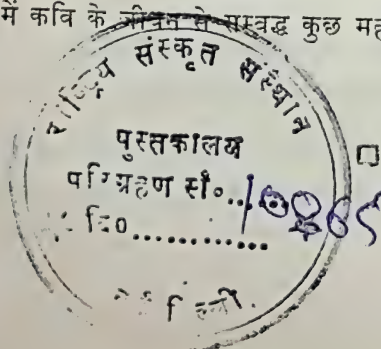 में कवि के जीवन से सम्बद्ध कुछ मह
राष्ट्रिय संस्कृत संस्थान
पुस्तकालय
परिग्रहण सं०...
दि०............